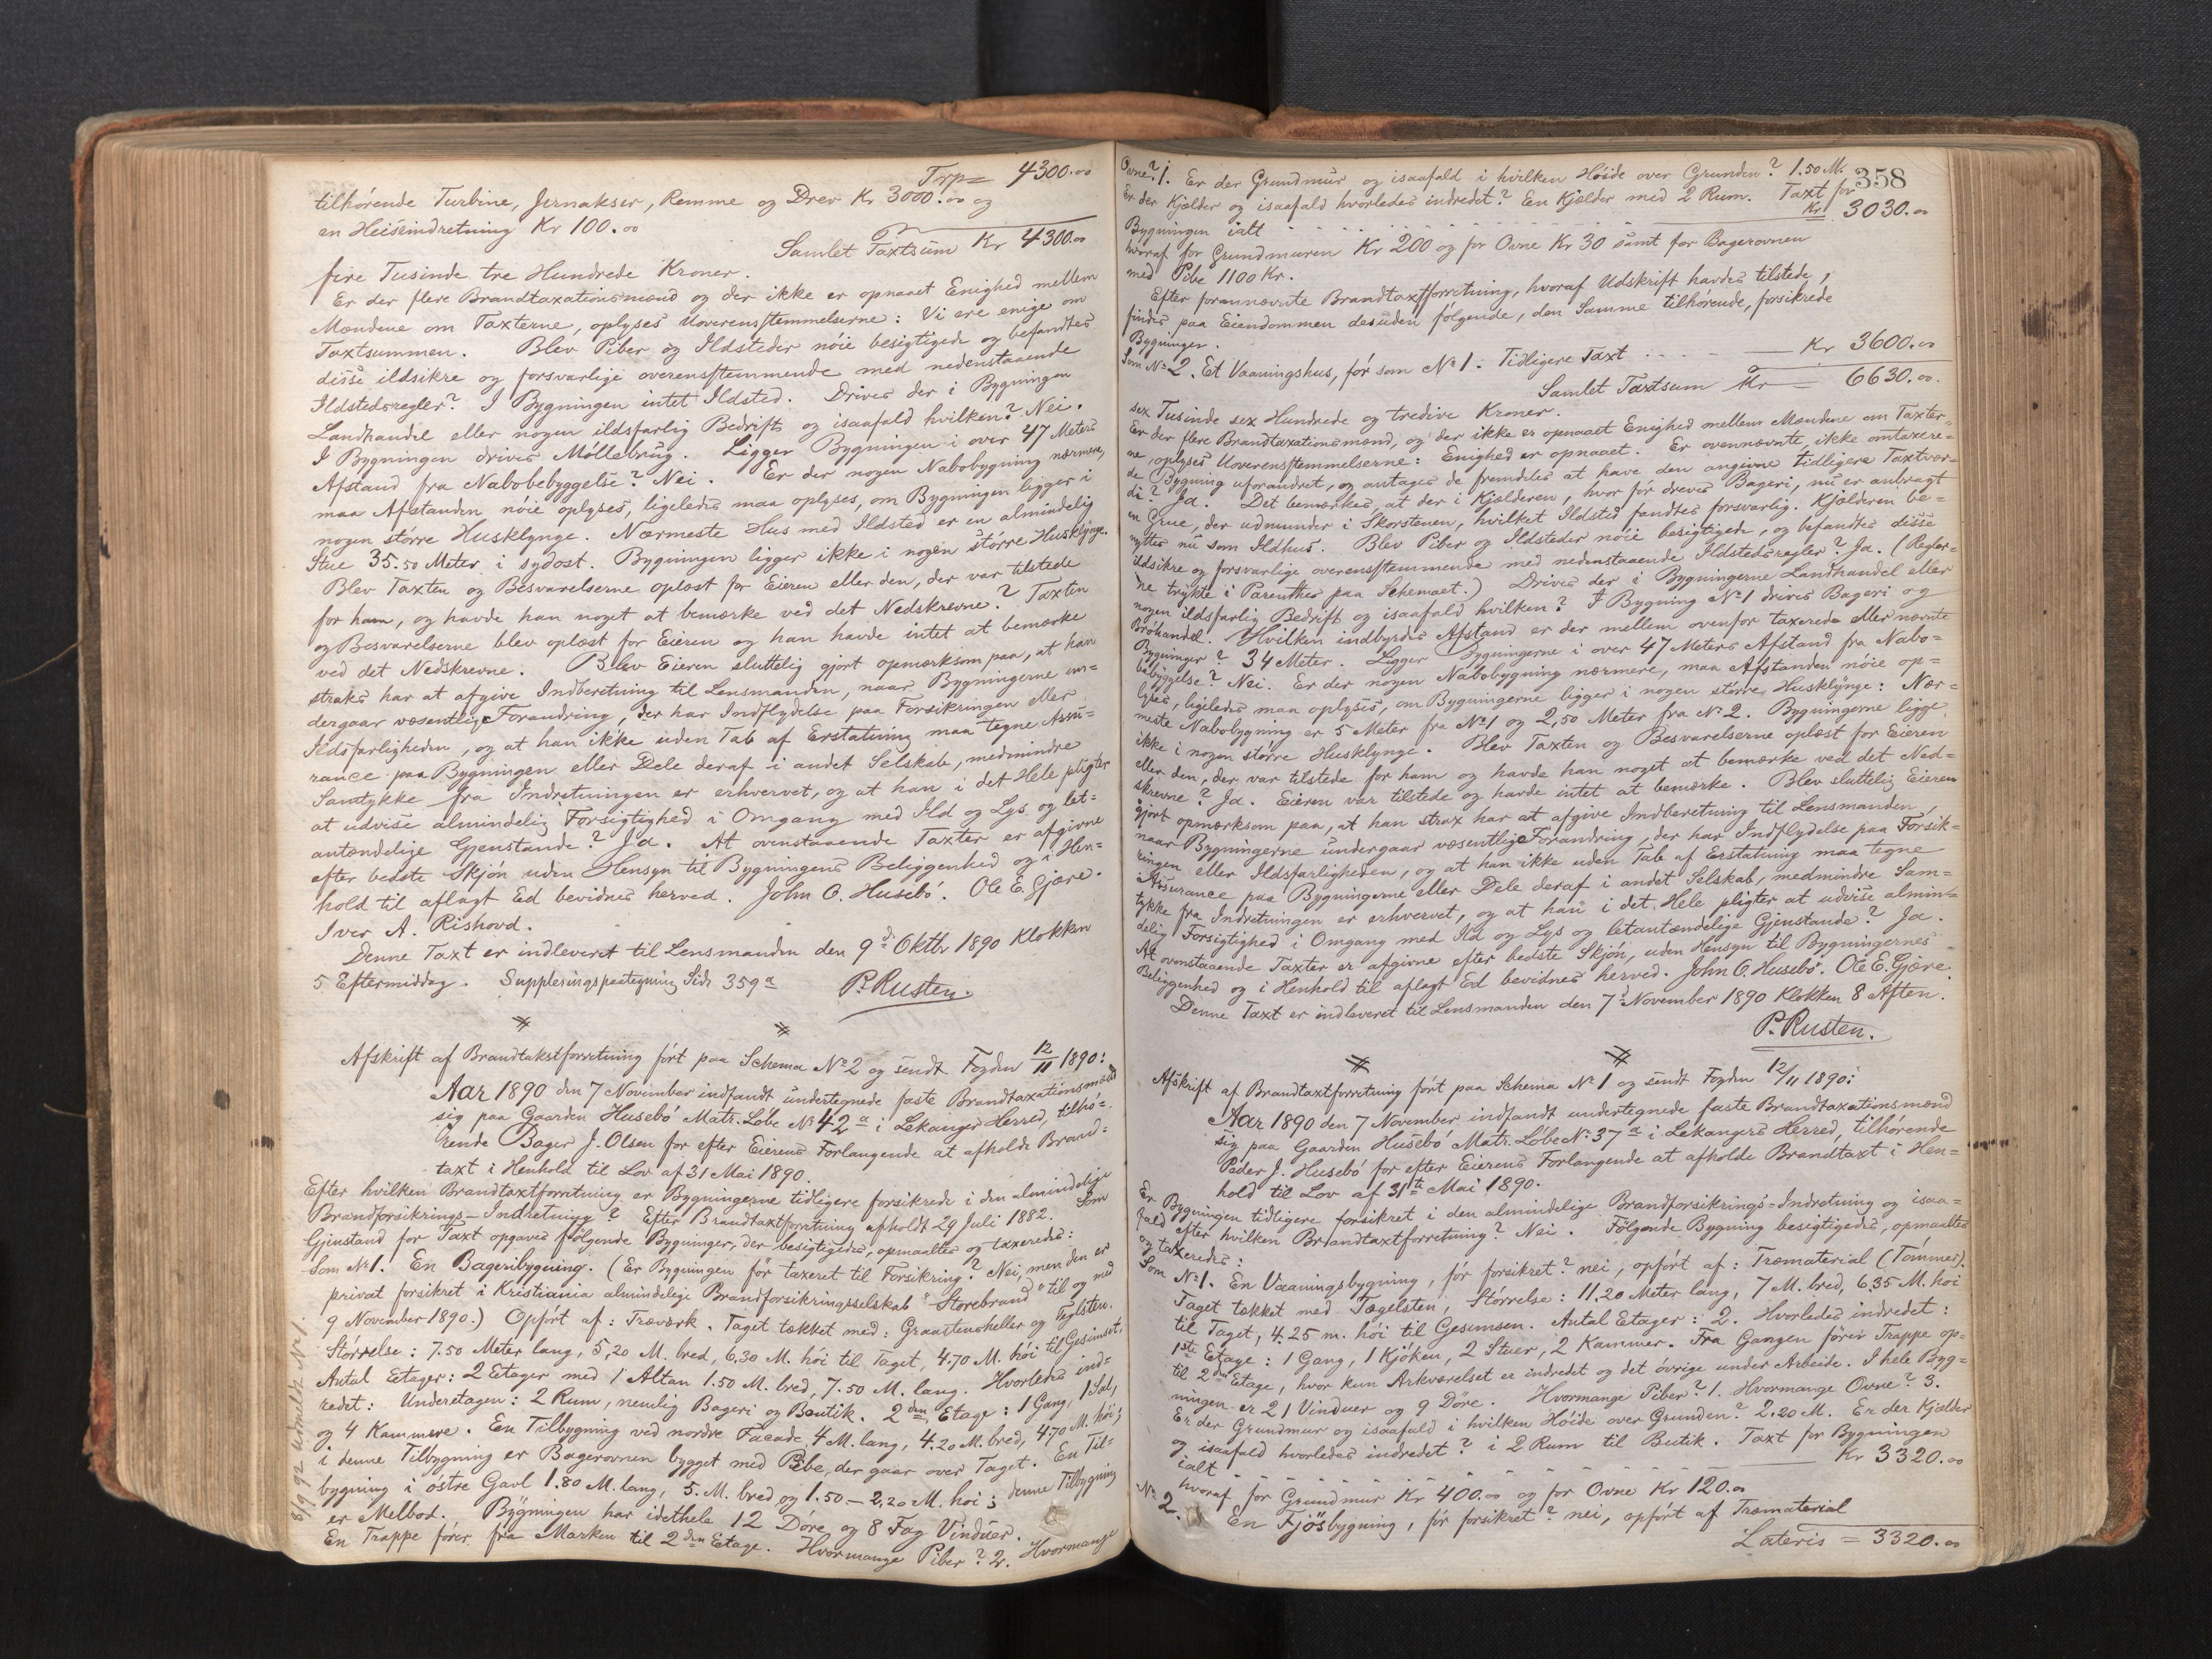 Trp = 4300.00
tilhórende Turbine, Jernakser, Remme og Drev Kr 3000.00 og
en Heiseindretning Kr 100.00
Samlet Taxtsum Kr 4300.00
fire Tusinde tre Hundrede Kroner.
Er der flere Brandtaxationsmænd og der ikke er opnaaet Enighed mellem
Mændene om Taxterne, oplyses Uoverensstemmelserne: Vi ere enige om
Taxtsummen. Blev Piber og Ildsteder nóie besigtigede og befandtes
disse ildsikre og forsvarlige overensstemmende med nedenstaaende
Ildstedsregler? I Bygningen intet Ildsted. Drives der i Bygningen
Landhandel eller nogen ildsfarlig Bedrift og isaafald hvilken? Nei.
I Bygningen drives Móllebrug. Ligger Bygningen i over 47 Meters
Afstand fra Nabobebyggelse? Nei. Er der nogen Nabobygning nærmere,
maa Afstanden nóie oplyses, ligeledes maa oplyses, om Bygningen ligger i
nogen stórre Husklynge. Nærmeste Hus med Ildsted er en almindelig
Stue 35.50 Meter i sydost. Bygningen ligger ikke i nogen stórre Husklynge.
Blev Taxten og Besvarelserne oplæst for Eieren eller den, der var tilstede
for ham, og havde han noget at bemærke ved det Nedskrevne? Taxten
og Besvarelserne blev oplæst for Eieren og han havde intet at bemærke
ved det Nedskrevne. Blev Eieren sluttelig gjort opmærksom paa, at han
straks har at afgive Indberetning til Lensmanden, naar Bygningerne un=
dergaar væsentlige Forandring, der har Indflydelse paa Forsikringen eller
Ildsfarligheden, og at han ikke uden Tab af Erstatning maa tegne Assu=
rance paa Bygningen eller Dele deraf i andet Selskab, medmindre
Samtykke fra Indretningen er erhvervet, og at han i det Hele pligter
at udvise almindelig Forsigtighed i Omgang med Ild og Lys og let=
antændelige Gjenstande? Ja. At ovenstaaende Taxter er afgivne
efter bedste Skjón uden Hensyn til Bygningens Beliggenhed og i Hen=
hold til aflagt Ed bevidnes herved. John O. Husebó. Ole E. Gjære.
Iver A. Rishovd.
Denne Taxt er indleveret til Lensmanden den 9de Oktbr 1890 Klokken
5 Eftermiddag. Suppleringspaategning Side 359a P. Rusten.
Afskrift af Brandtakstforretning fórt paa Schema No 2 og sendt Fogden 12/11 1890:
Aar 1890 den 7 November indfandt undertegnede faste Brandtaxationsmænd
sig paa Gaarden Husebó Matr. Lóbe No 42a i Lekanger Herred, tilhó=
rende Bager J. Olsen for efter Eierens Forlangende at afholde Brand=
taxt i Henhold til Lov af 31 Mai 1890.
Efter hvilken Brandtaxtforretning er Bygningerne tidligere forsikrede i den almindelige
Brandforsikrings-Indretning? Efter Brandtaxtforretning afholdt 29 Juli 1882. Som
Gjenstand for Taxt opgaves fólgende Bygninger, der besigtigedes, opmaaltes og taxeredes:
Som No 1. En Bageribygning. (Er Bygningen fór taxeret til Forsikring? Nei, men den er
privat forsikret i Kristiania almindelige Brandforsikringsselskab "Storebrand" til og med
9 November 1890.) Opfórt af: Træværk. Taget tækket med: Graastensheller og Teglsten.
Stórrelse: 7.50 Meter lang, 5,20 M. bred, 6,30 M. hói til Taget, 4.70 M. hói til Gesimset.
Antal Etager: 2 Etager med 1 Altan 1.50 M. bred, 7.50 M. lang. Hvorledes ind=
redet: Underetagen: 2 Rum, nemlig Bageri og Boutik. 2den Etage: 1 Gang, 1 Sal,
og 4 Kammere. En Tilbygning ved nordre Facade 4 M. lang, 4.20 M. bred, 4.70 M. hói;
i denne Tilbygning er Bagerovnen bygget med Pibe, der gaar over Taget. En Til=
bygning i óstre Gavl 1.80 M. lang, 5. M. bred og 1.50 - 2,20 M. hói; denne Tilbygning
er Melbod. Bygningen har idethele 12 Dóre og 8 Fag Vinduer.
En Trappe fórer fra Marken til 2den Etage. Hvormange Piber? 2. Hvormange
8/9 92 udmeldt No 1.
358
Ovne? 1. Er der Grundmur og isaafald i hvilken Hóide over Grunden? 1.50 M.
Er der Kjælder og isaafald hvorledes indredet? En Kjælder med 2 Rum. Taxt for
Bygningen ialt Kr 3030.00
hvoraf for Grundmuren Kr 200 og for Ovne Kr 30 samt for Bagerovnen
med Pibe 1100 Kr.
Efter forannævnte Brandtaxtforretning, hvoraf Udskrift havdes tilstede,
findes paa Eiendommen desuden fólgende, den Samme tilhórende, forsikrede
Bygninger.
Som No 2. Et Vaaningshus, fór som No 1. Tidligere Taxt Kr 3600.00
Samlet Taxtsum Kr 6630.00.
sex Tusinde sex Hundrede og tredive Kroner.
Er der flere Brandtaxationsmænd, og der ikke er opnaaet Enighed mellem Mændene om Taxter=
ne, oplyses Uoverensstemmelserne: Enighed er opnaaet. Er ovennævnte, ikke omtaxere=
de Bygning uforandret, og antages de fremdeles at have den angivne tidligere Taxtvær=
di? Ja. Det bemærkes, at der i Kjælderen, hvor fór dreves Bageri, nu er anbragt
en Grue, der udmunder i Skorstenen, hvilket Ildsted fandtes forsvarlig. Kjælderen be=
nyttes nu som Ildhus. Blev Piber og Ildsteder nóie besigtigede, og befandtes disse
ildsikre og forsvarlige overensstemmende med nedenstaaende Ildstedsregler? Ja. (Regler=
ne trykte i Parenthes paa Schemaet.) Drives der i Bygningerne Landhandel eller
nogen ildsfarlig Bedrift og isaafald hvilken? I Bygning No 1 drives Bageri og
Bróhandel. Hvilken indbyrdes Afstand er der mellem ovenfor taxerede eller nævnte
Bygninger? 34 Meter. Ligger Bygningerne i over 47 Meters Afstand fra Nabo=
bebyggelse? Nei. Er der nogen Nabobygning nærmere, maa Afstanden nóie op=
lyses, ligeledes maa oplyses, om Bygningerne ligger i nogen stórre Husklynge: Nær=
meste Nabobygning er 5 Meter fra No 1 og 2,50 Meter fra No 2. Bygningerne ligge
ikke i nogen stórre Husklynge. Blev Taxten og Besvarelserne oplæst for Eieren
eller den, der var tilstede for ham og havde han noget at bemærke ved det Ned=
skrevne? Ja. Eieren var tilstede og havde intet at bemærke. Blev sluttelig Eieren
gjort opmærksom paa, at han strax har at afgive Indberetning til Lensmanden,
naar Bygningerne undergaar væsentlige Forandring, der har Indflydelse paa Forsik=
ringen eller Ildsfarligheden, og at han ikke uden Tab af Erstatning maa tegne
Assurance paa Bygningerne eller Dele deraf i andet Selskab, medmindre Sam=
tykke fra Indretningen er erhvervet, og at han i det Hele pligter at udvise almin=
delig Forsigtighed i Omgang med Ild og Lys og letantændelige Gjenstande? Ja.
At ovenstaaende Taxter er afgivne efter bedste Skjón, uden Hensyn til Bygningernes
Beliggenhed og i Henhold til aflagt Ed bevidnes herved. John O. Husebó. Ole E. Gjære.
Denne Taxt er indleveret til Lensmanden den 7de November 1890 Klokken 8 Aften.
P. Rusten.
Afskrift af Brandtaxtforretning fórt paa Schema No 1 og sendt Fogden 12/11 1890:
Aar 1890 den 7 November indfandt undertegnede faste Brandtaxationsmænd
sig paa Gaarden Husebó Matr. Lóbe No 37a i Lekangers Herred, tilhórende
Peder J. Husebó for efter Eierens Forlangende at afholde Brandtaxt i Hen=
hold til Lov af 31te Mai 1890.
Er Bygningen tidligere forsikret i den almindelige Brandforsikrings=Indretning og isaa=
fald efter hvilken Brandtaxtforretning? Nei. Fólgende Bygning besigtigedes, opmaaltes
og taxeredes:
Som No 1. En Vaaningsbygning, fór forsikret? nei, opfórt af: Træmaterial (Tómmer).
Taget tækket med Tægelsten, Stórrelse: 11.20 Meter lang, 7 M. bred, 6,35 M. hói
til Taget, 4.25 m. hói til Gesimsen. Antal Etager: 2. Hvorledes indredet:
1ste Etage: 1 Gang, 1 Kjóken, 2 Stuer, 2 Kammer. Fra Gangen fórer Trappe op=
til 2den Etage, hvor kun Arkværelset er indredet og det óvrige under Arbeide. I hele Byg=
ningen er 21 Vinduer og 9 Dóre. Hvormange Piber? 1. Hvormange Ovne? 3.
Er der Grundmur og isaafald i hvilken Hóide over Grunden? 2.20 M. Er der Kjælder
og isaafald hvorledes indredet? i 2 Rum til Butik. Taxt for Bygningen
ialt Kr 3320.00
hvoraf for Grundmur Kr 400.00 og for Ovne Kr 120.00
No 2. En Fjösbygning, fór forsikret? nei, opfórt af Træmaterial
Lateris = 3320.00